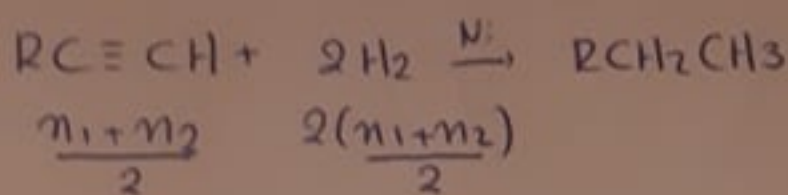 RC ≡ CH + 2H2 Ni → RCH2CH3
n1+n2/2 2(n1+n2/2)